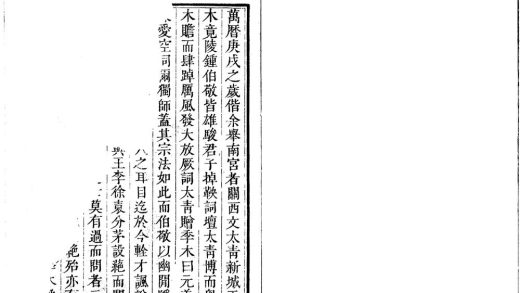 萬曆庚戌之歲偕余舉南宮者關西文太青新城王
木竟陵鍾伯敬皆雄駿君子掉鞅詞壇太青博而奧
木贍而肆踔厲風發大放厥詞太青贈季木曰元美
愛空同爾獨師蓋其宗法如此而伯敬以幽閒
之耳目迄於今輇才諷說
王李徐袁分茅設蕝而
莫有過而問者
殆亦